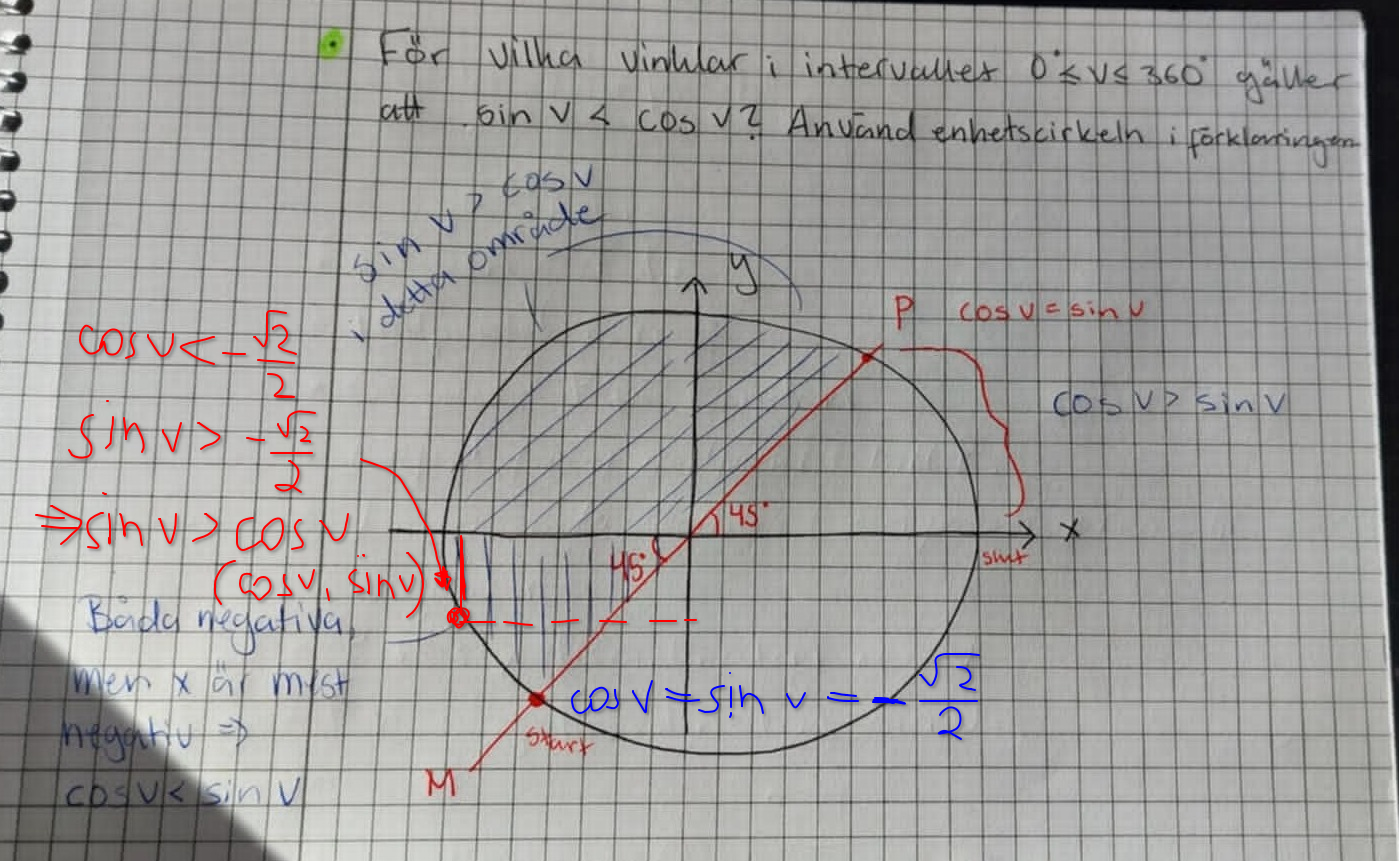 För vilka vinklar i intervallet 0° ≤ v ≤ 360° gäller
att sin v < cos v? Använd enhetscirkeln i förklaringen
sin v > cos v
i detta område
y
P cos v = sin v
cos v < -√2/2
cos v > sin v
sin v > -√2/2
⇒ sin v > cos v
45°
x
slut
45°
(cos v, sin v)
Båda negativa,
men x är mest
negativ ⇒
cos v < sin v
cos v = sin v = -√2/2
start
M